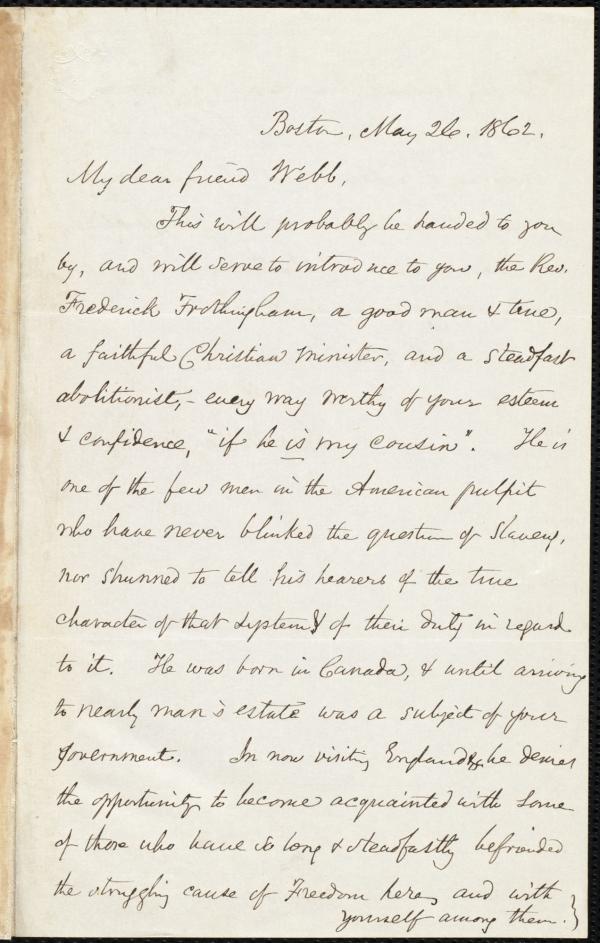 Boston, May 26. 1862.
My dear friend Webb,
This will probably be handed to you
by, and will serve to introduce to you, the Rev.
Frederick Frothingham, a good man & true,
a faithful Christian minister, and a steadfast
abolitionist,- every way worthy of your esteem
& confidence, "if he is my cousin". He is
one of the few men in the American pulpit
who have never blinked the question of Slavery,
nor shunned to tell his hearers of the true
character of that system & of their duty in regard
to it. He was born in Canada, & until arriving
to nearly man's estate was a subject of your
Government. In now visiting England &c he desires
the opportunity to become acquainted with some
of those who have so long & steadfastly befriended
the struggling cause of Freedom here, and with
yourself among them.}